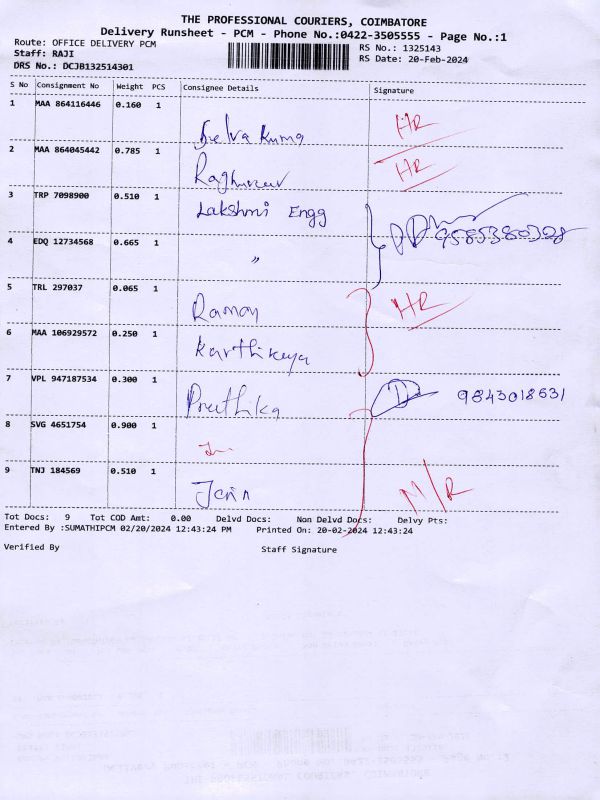 THE PROFESSIONAL COURIERS, COIMBATORE
Delivery Runsheet - PCM - Phone No.:0422-3505555 - Page No.:1
Route: OFFICE DELIVERY PCM
RS No.: 1325143
Staff: RAJI
RS Date: 20-Feb-2024
DRS No.: DCJB132514301
S No Consignment No Weight PCS Consignee Details Signature
1 MAA 864116446 0.160 1 Selva Kumar HR
2 MAA 864045442 0.785 1 Raghuveer HR
3 TRP 7098900 0.510 1 Lakshmi Engg
4 EDQ 12734568 0.665 1 〃 9585380328
5 TRL 297037 0.065 1 Raman HR
6 MAA 106929572 0.250 1 Karthikeya
7 VPL 947187534 0.300 1 Preethika 9843018631
8 SVG 4651754 0.900 1
9 TNJ 184569 0.510 1 Jerin M/R
Tot Docs: 9 Tot COD Amt: 0.00 Delvd Docs: Non Delvd Docs: Delvy Pts:
Entered By :SUMATHIPCM 02/20/2024 12:43:24 PM Printed On: 20-02-2024 12:43:24
Verified By Staff Signature